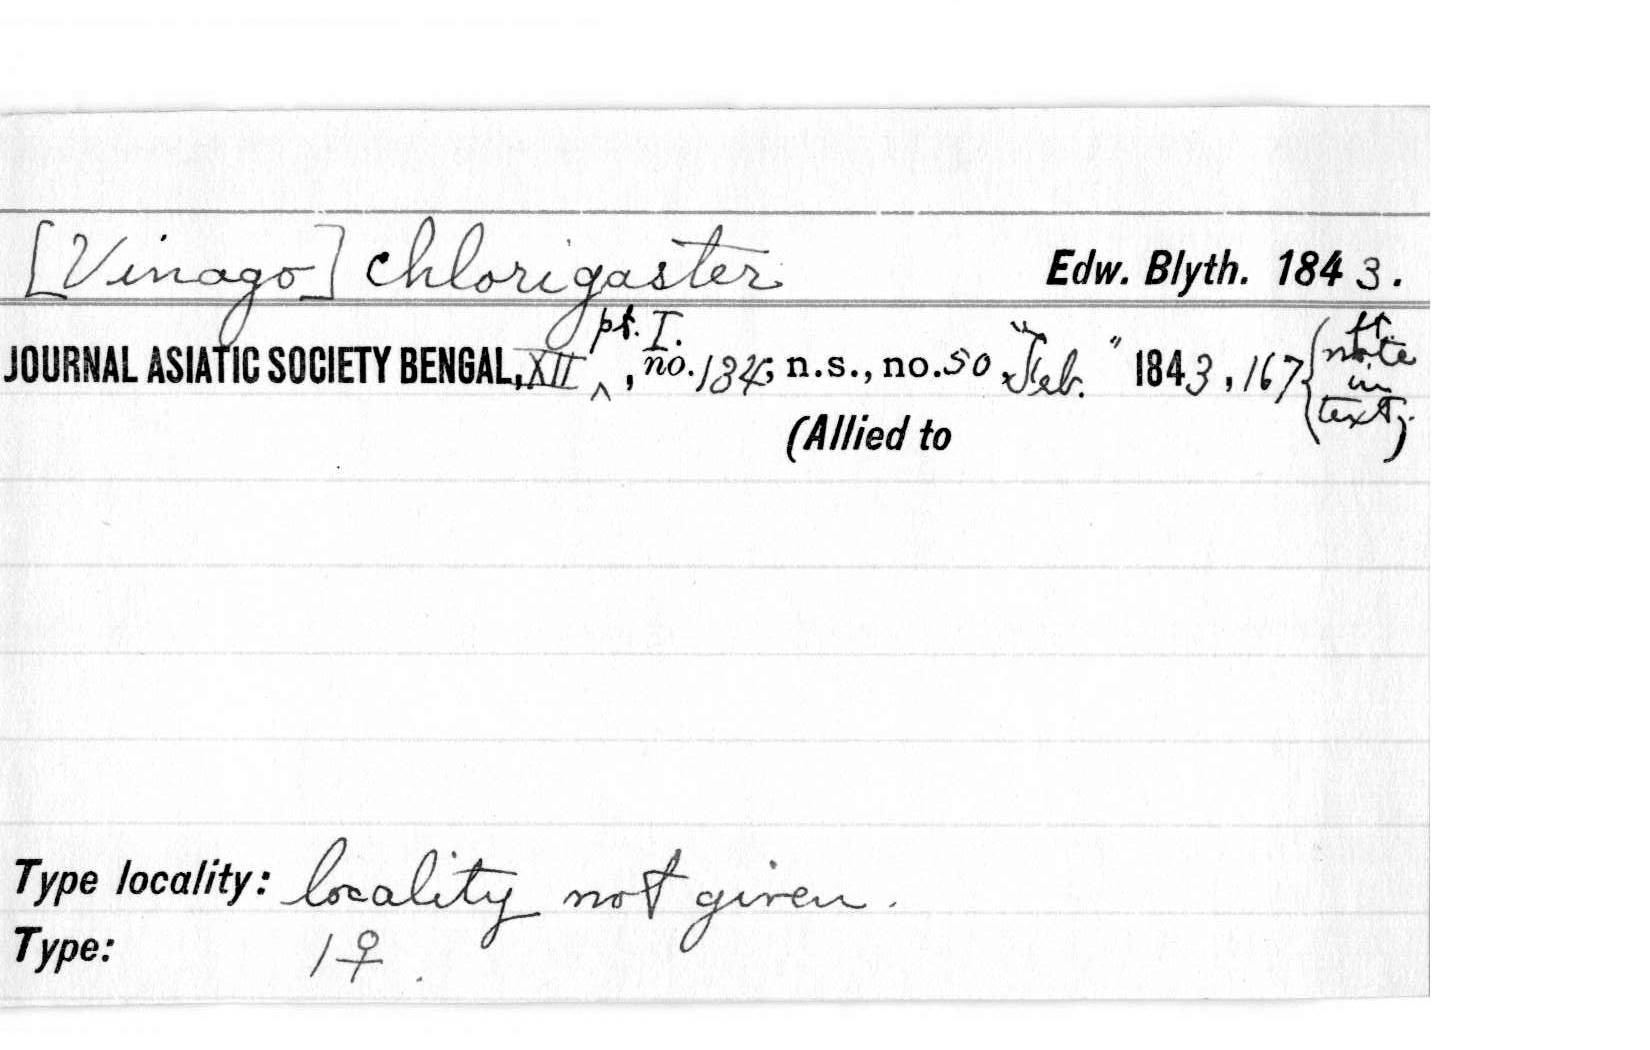 [Vinago] chlorigaster Edw. Blyth. 1843.
JOURNAL ASIATIC SOCIETY BENGAL, XII ^ pt. I. , no. 134; n.s., no. 50 "Feb." 1843, 167 (ft. note in text).
(Allied to
Type locality: locality not given.
Type: 1♀.